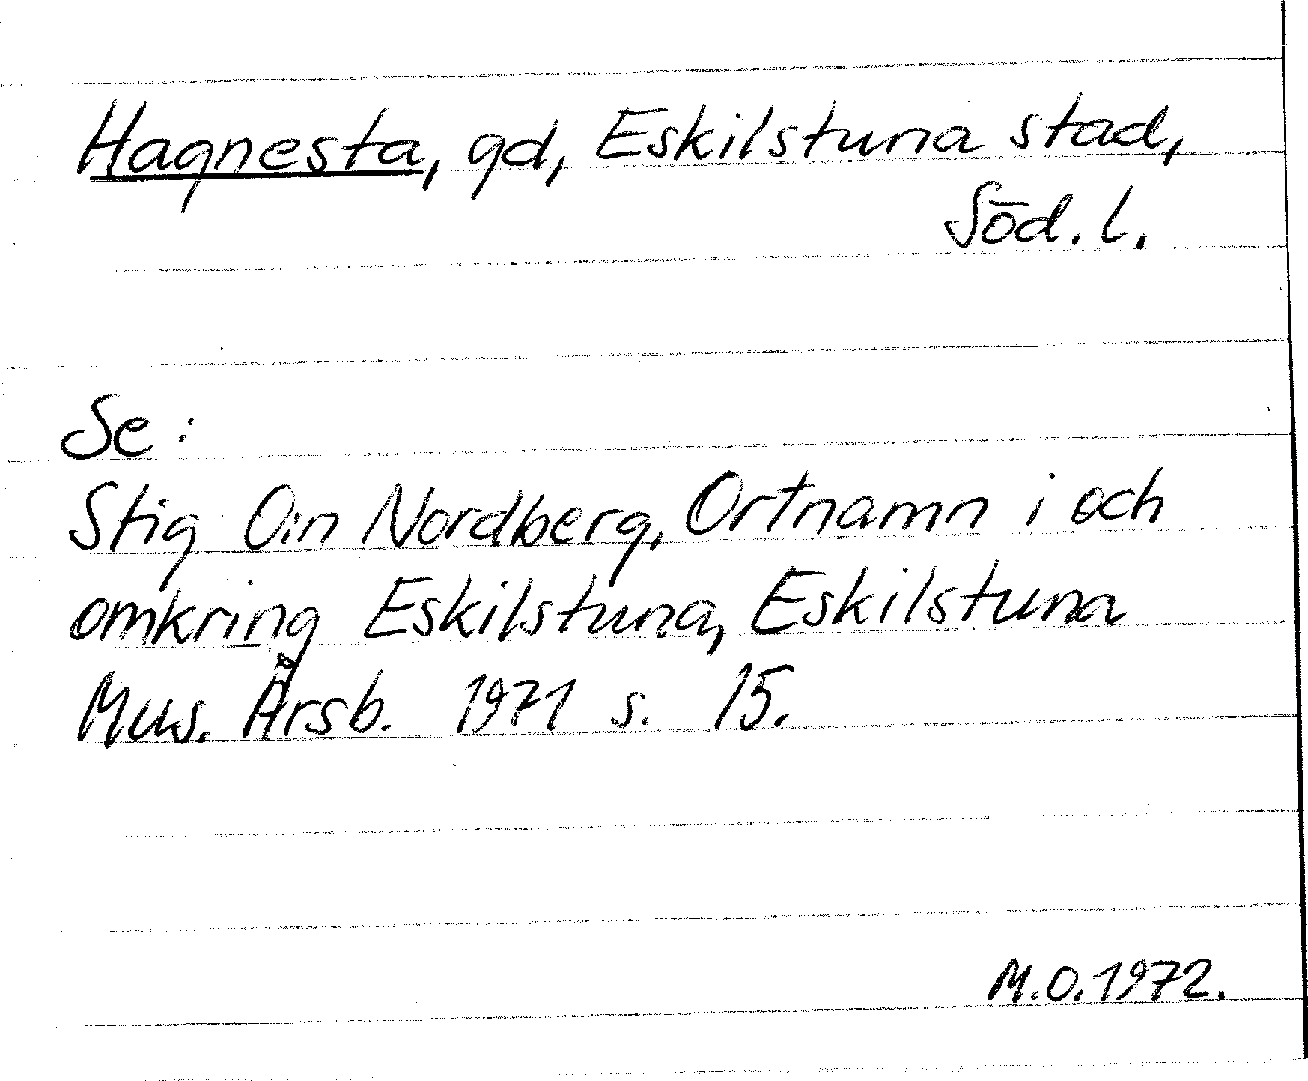 Hagnesta, gd, Eskilstuna stad,
Söd. l.
Se:
Stig O:n Nordberg, Ortnamn i och
omkring Eskilstuna, Eskilstuna
Mus. Årsb. 1971 s. 15.
M.O. 1972.